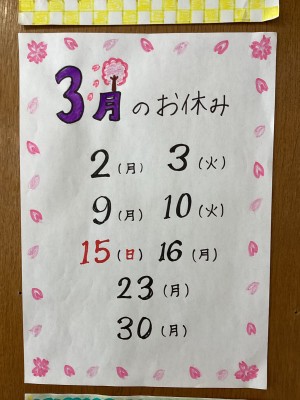 3月のお休み
2(月) 3(火)
9(月) 10(火)
15(日) 16(月)
23(月)
30(月)